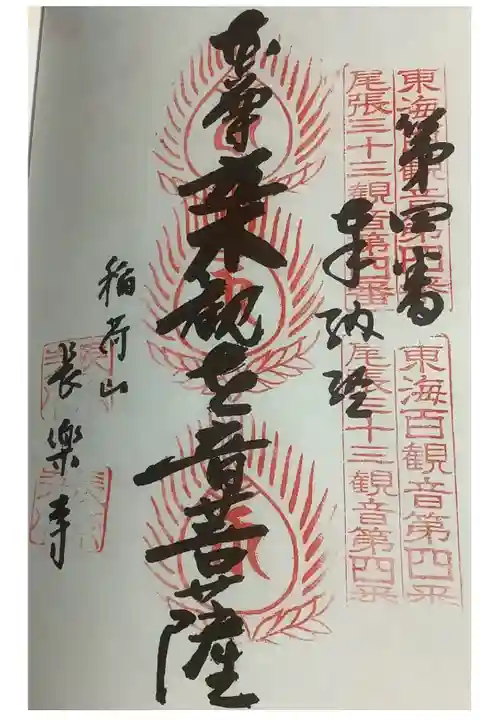 東海百観音第四番
尾張三十三観音第四番
東海百観音第四
尾張三十三観音第四
第四番
奉納経
観世音菩薩
稲荷山
長樂寺